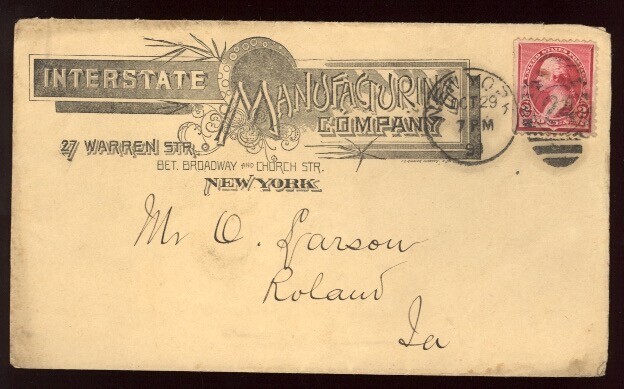 INTERSTATE
MANUFACTURING
COMPANY
27 WARREN STR.
BET. BROADWAY AND CHURCH STR.
NEW YORK
OCT 29
7 PM
Mr O. Larson
Roland
Ia